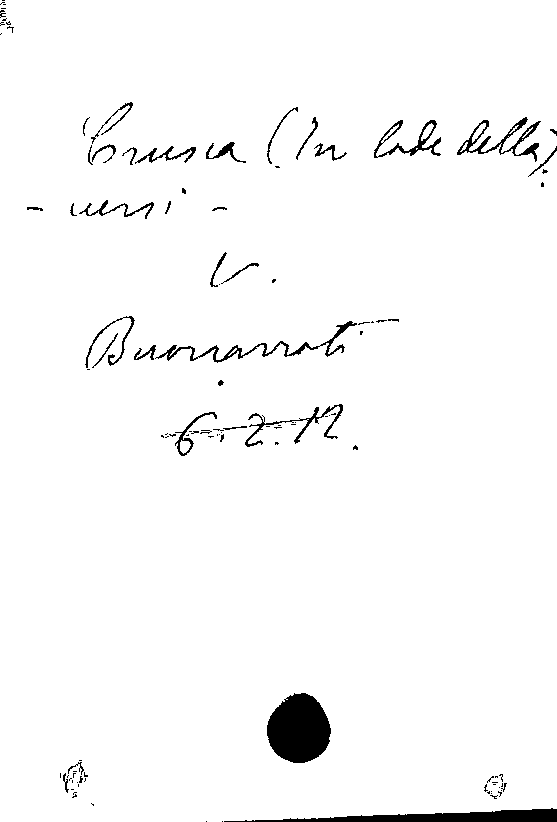 Crusca (In lode della)
- versi -
V.
Buonarroti
6.2.12.